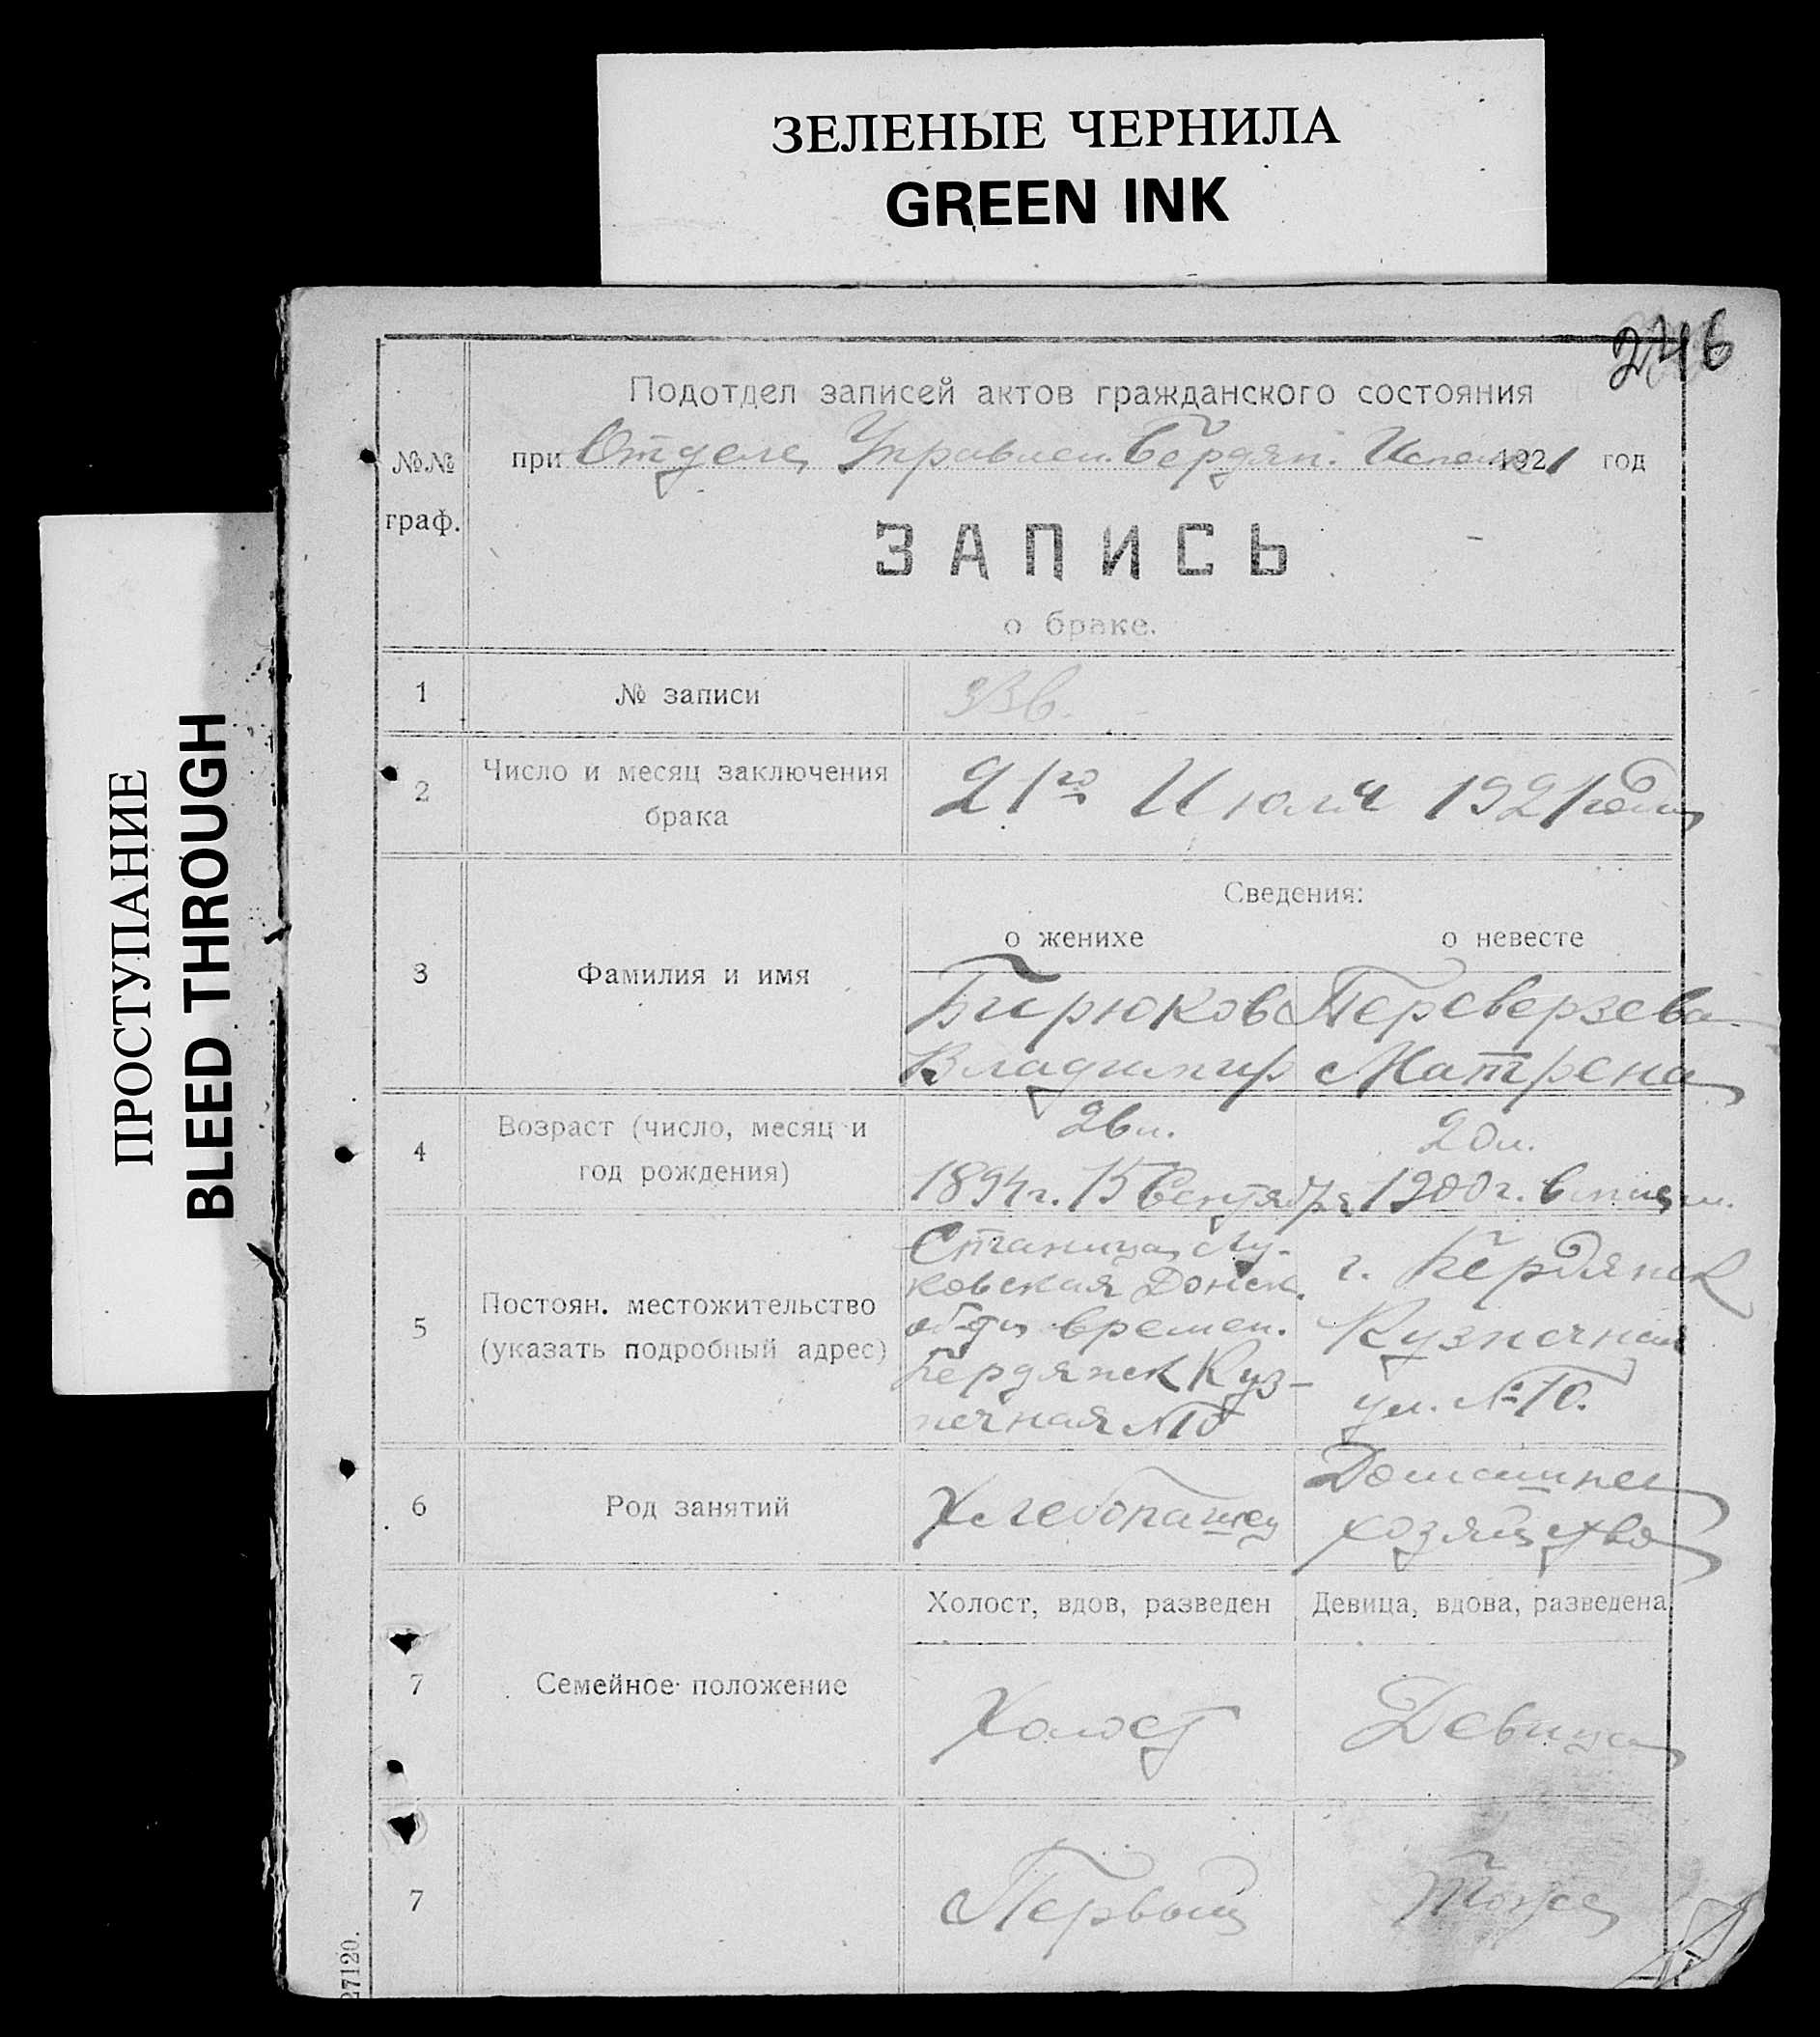 ЗЕЛЕНЫЕ ЧЕРНИЛА
GREEN INK
ПРОСТУПАНИЕ
BLEED THROUGH
246
Подотдел записей актов гражданского состояния
№№ граф.
при Отделе Управлен. Бердян. Исполк. 1921 год
ЗАПИСЬ
о браке.
1 № записи
2 Число и месяц заключения брака 21го Июля 1921 года
Сведения:
о женихе о невесте
3 Фамилия и имя
Бирюков Переверзева
Владимир Матрена
4 Возраст (число, месяц и год рождения)
26 л. 20 л.
1894 г. 15 Сентября 1900 г.
5 Постоян. местожительство (указать подробный адрес)
Станица Лу-
ковская Донск.
обл времен.
Бердянск Куз-
нечная №10
г. Бердянск
Кузнечная
ул. №10.
6 Род занятий
Хлебопашец
Домашнее
хозяйство
Холост, вдов, разведен Девица, вдова, разведена
7 Семейное положение
Холост Девица
7 Первый Тоже
27120.